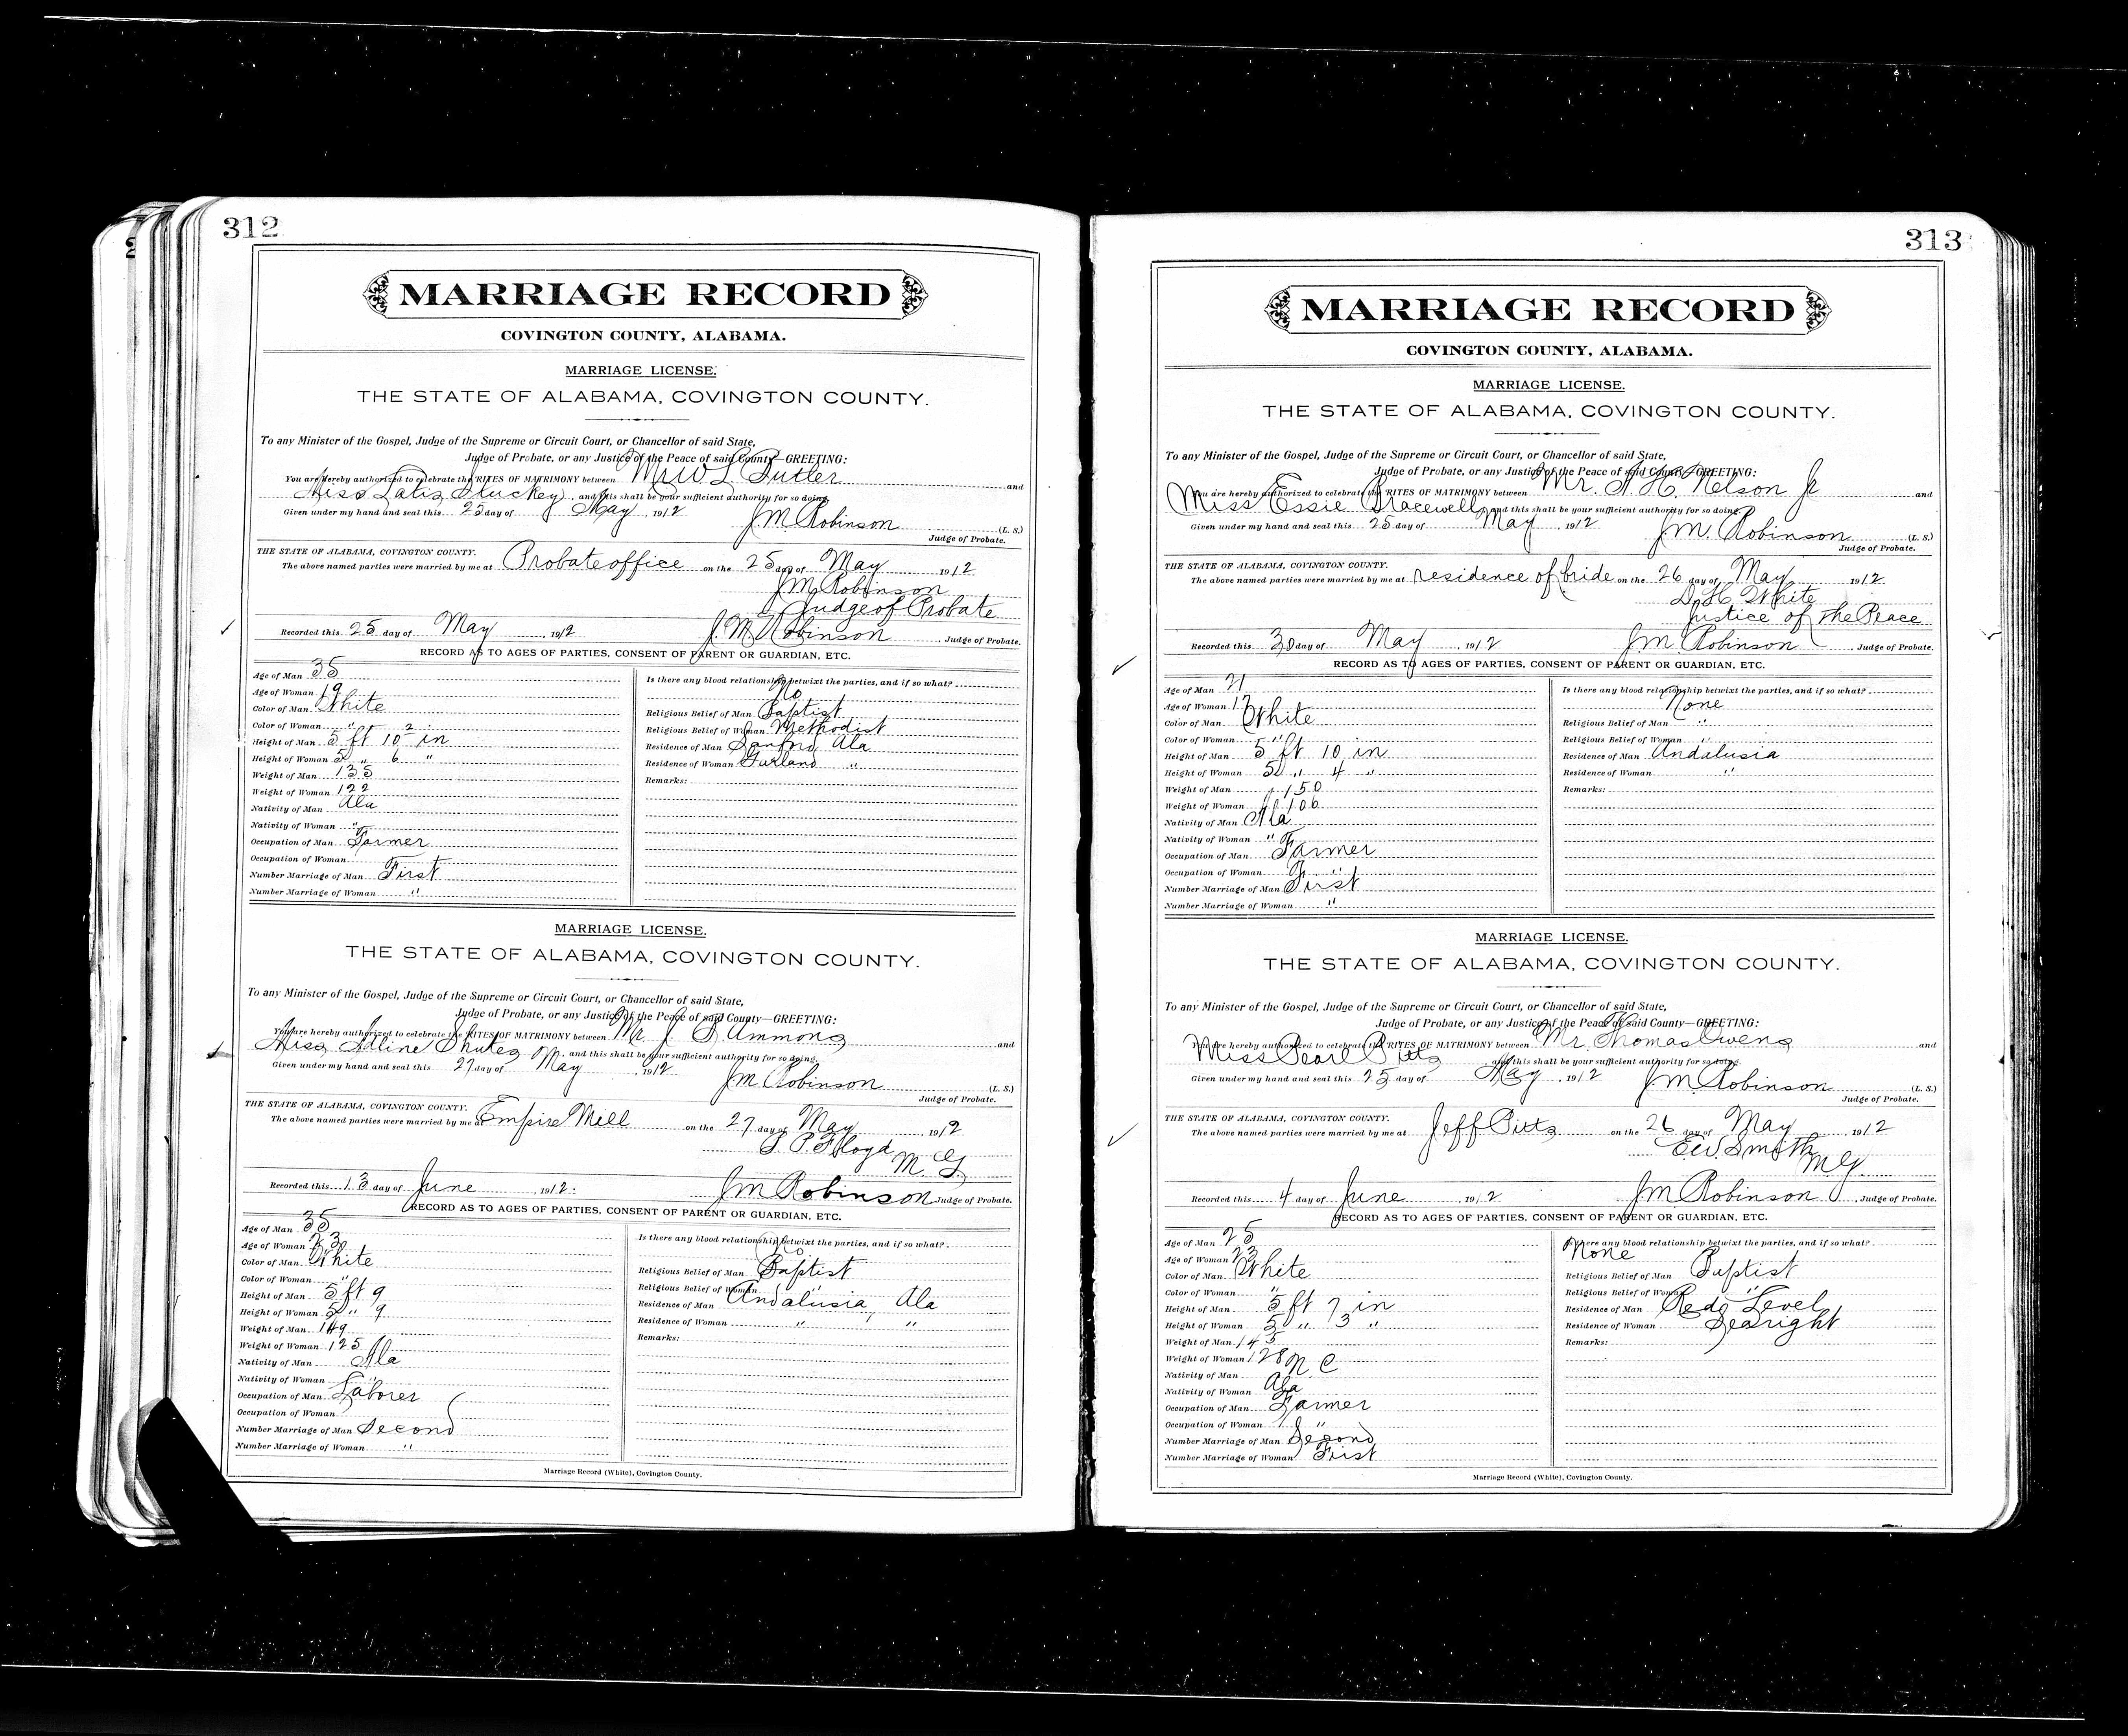 312
MARRIAGE RECORD
COVINGTON COUNTY, ALABAMA.
MARRIAGE LICENSE.
THE STATE OF ALABAMA, COVINGTON COUNTY.
To any Minister of the Gospel, Judge of the Supreme or Circuit Court, or Chancellor of said State,
Judge of Probate, or any Justice of the Peace of said County—GREETING:
You are hereby authorized to celebrate the RITES OF MATRIMONY between Mr W L Butler and
Miss Stuckey, and this shall be your sufficient authority for so doing.
Given under my hand and seal this 25 day of May, 1912 J.M. Robinson (L. S.)
Judge of Probate.
THE STATE OF ALABAMA, COVINGTON COUNTY.
The above named parties were married by me at Probate office on the 25 day of May 1912
J M Robinson
Judge of Probate
Recorded this 25 day of May, 1912 J. M Robinson, Judge of Probate.
RECORD AS TO AGES OF PARTIES, CONSENT OF PARENT OR GUARDIAN, ETC.
Age of Man 35
Age of Woman 19
Color of Man White
Color of Woman "
Height of Man 5 ft 10 2 in
Height of Woman 5 " 6 "
Weight of Man 135
Weight of Woman 122
Nativity of Man Ala
Nativity of Woman "
Occupation of Man Farmer
Occupation of Woman
Number Marriage of Man First
Number Marriage of Woman "
Is there any blood relationship betwixt the parties, and if so what?
No
Religious Belief of Man Baptist
Religious Belief of Woman Methodist
Residence of Man Sanford Ala
Residence of Woman Garland "
Remarks:
MARRIAGE LICENSE.
THE STATE OF ALABAMA, COVINGTON COUNTY.
To any Minister of the Gospel, Judge of the Supreme or Circuit Court, or Chancellor of said State,
Judge of Probate, or any Justice of the Peace of said County—GREETING:
You are hereby authorized to celebrate the RITES OF MATRIMONY between Mr. J. Ammons and
Miss Adline Shutes, and this shall be your sufficient authority for so doing.
Given under my hand and seal this 27 day of May, 1912 J M Robinson (L. S.)
Judge of Probate.
THE STATE OF ALABAMA, COVINGTON COUNTY.
The above named parties were married by me at Empire Mill on the 27 day of May, 1912
S P Floyd
M. G
Recorded this 13 day of June, 1912. J M Robinson Judge of Probate.
RECORD AS TO AGES OF PARTIES, CONSENT OF PARENT OR GUARDIAN, ETC.
Age of Man 35
Age of Woman 23
Color of Man White
Color of Woman "
Height of Man 5 ft 9
Height of Woman 5 " 9
Weight of Man 149
Weight of Woman 125
Nativity of Man Ala
Nativity of Woman "
Occupation of Man Laborer
Occupation of Woman
Number Marriage of Man Second
Number Marriage of Woman "
Is there any blood relationship betwixt the parties, and if so what?
No
Religious Belief of Man Baptist
Religious Belief of Woman "
Residence of Man Andalusia, Ala
Residence of Woman " "
Remarks:
Marriage Record (White), Covington County.
313
MARRIAGE RECORD
COVINGTON COUNTY, ALABAMA.
MARRIAGE LICENSE.
THE STATE OF ALABAMA, COVINGTON COUNTY.
To any Minister of the Gospel, Judge of the Supreme or Circuit Court, or Chancellor of said State,
Judge of Probate, or any Justice of the Peace of said County—GREETING:
You are hereby authorized to celebrate the RITES OF MATRIMONY between Mr. A. H. Nelson Jr and
Miss Essie Bracewell, and this shall be your sufficient authority for so doing.
Given under my hand and seal this 25 day of May, 1912 J.M. Robinson (L. S.)
Judge of Probate.
THE STATE OF ALABAMA, COVINGTON COUNTY.
The above named parties were married by me at residence of bride on the 26 day of May 1912
D. H. White
Justice of the Peace
Recorded this 30 day of May, 1912 J.M. Robinson, Judge of Probate.
RECORD AS TO AGES OF PARTIES, CONSENT OF PARENT OR GUARDIAN, ETC.
Age of Man 21
Age of Woman 17
Color of Man White
Color of Woman "
Height of Man 5 ft 10 in
Height of Woman 5 " 4 "
Weight of Man 150
Weight of Woman 106
Nativity of Man Ala
Nativity of Woman "
Occupation of Man Farmer
Occupation of Woman "
Number Marriage of Man First
Number Marriage of Woman "
Is there any blood relationship betwixt the parties, and if so what?
None
Religious Belief of Man "
Religious Belief of Woman "
Residence of Man Andalusia
Residence of Woman "
Remarks:
MARRIAGE LICENSE.
THE STATE OF ALABAMA, COVINGTON COUNTY.
To any Minister of the Gospel, Judge of the Supreme or Circuit Court, or Chancellor of said State,
Judge of Probate, or any Justice of the Peace of said County—GREETING:
You are hereby authorized to celebrate the RITES OF MATRIMONY between Mr. Thomas Owens and
Miss Pearl Pitts and this shall be your sufficient authority for so doing.
Given under my hand and seal this 25 day of May, 1912 J.M. Robinson (L. S.)
Judge of Probate.
THE STATE OF ALABAMA, COVINGTON COUNTY.
The above named parties were married by me at Jeff Pitts on the 26 day of May, 1912
E W Smith
M G
Recorded this 4 day of June, 1912 J M Robinson, Judge of Probate.
RECORD AS TO AGES OF PARTIES, CONSENT OF PARENT OR GUARDIAN, ETC.
Age of Man 25
Age of Woman 23
Color of Man White
Color of Woman "
Height of Man 5 ft 7 in
Height of Woman 5 " 3 "
Weight of Man 145
Weight of Woman 128
Nativity of Man N C
Nativity of Woman Ala
Occupation of Man Farmer
Occupation of Woman "
Number Marriage of Man Second
Number Marriage of Woman First
Is there any blood relationship betwixt the parties, and if so what?
None
Religious Belief of Man Baptist
Religious Belief of Woman "
Residence of Man Red Level
Residence of Woman Searight
Remarks:
Marriage Record (White), Covington County.